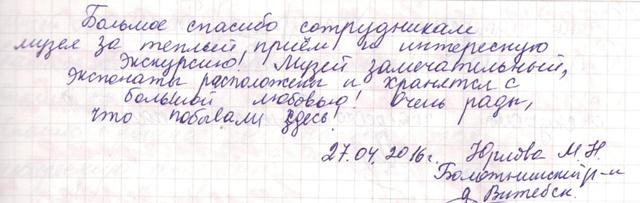 Большое спасибо сотрудникам
музея за теплый приём и интересную
экскурсию! Музей замечательный,
экспонаты расположены и хранятся с
большой любовью! Очень рады,
что побывали здесь!
27.04.2016г. Юрлова М.Н.
Болотнинский р-н
д. Витебск.